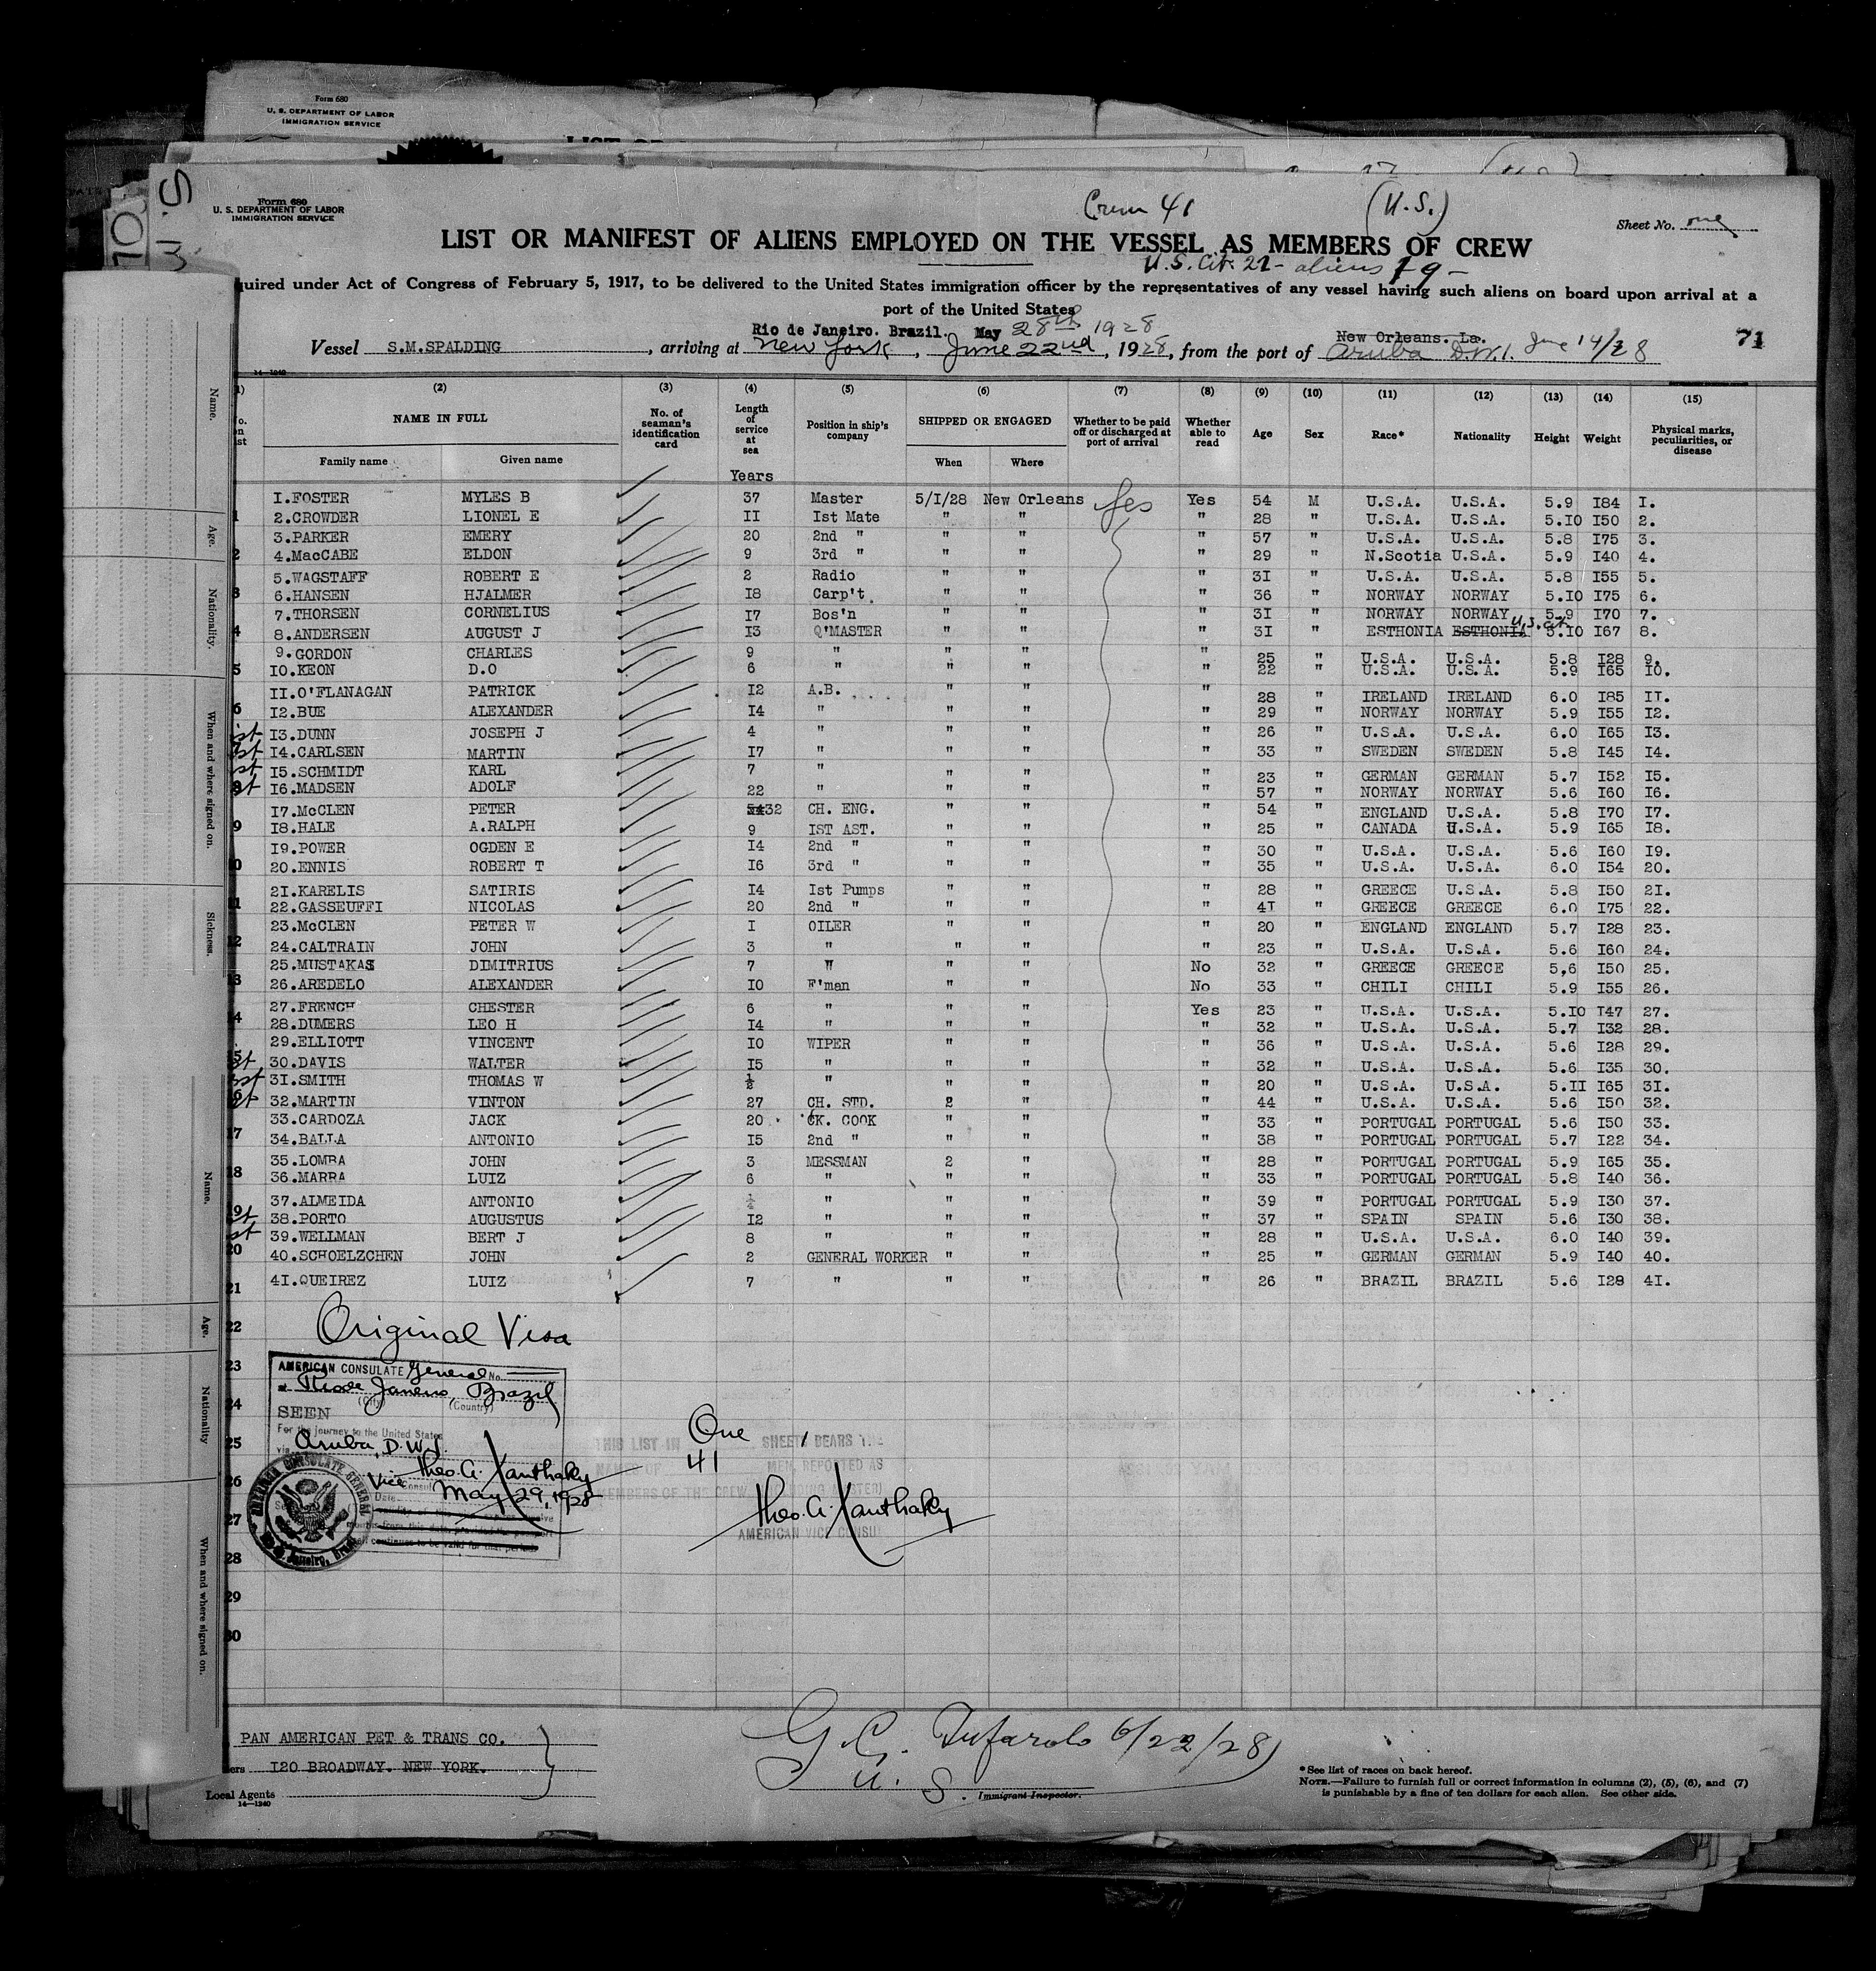 Form 680
U. S. DEPARTMENT OF LABOR
IMMIGRATION SERVICE
Form 680
U. S. DEPARTMENT OF LABOR
IMMIGRATION SERVICE
Crew 41 (U.S.)
Sheet No. one
LIST OR MANIFEST OF ALIENS EMPLOYED ON THE VESSEL AS MEMBERS OF CREW
U.S. Cit. 21 - aliens 19 -
quired under Act of Congress of February 5, 1917, to be delivered to the United States immigration officer by the representatives of any vessel having such aliens on board upon arrival at a
port of the United States
Rio de Janeiro. Brazil. May 28th 1928
New Orleans. La.
Vessel S.M.SPALDING, arriving at New York, June 22nd, 1928, from the port of Aruba D.W.I. June 14/28
71
14-1240
(2) (3) (4) (5) (6) (7) (8) (9) (10) (11) (12) (13) (14) (15)
NAME IN FULL No. of seaman's identification card Length of service at sea Position in ship's company SHIPPED OR ENGAGED Whether to be paid off or discharged at port of arrival Whether able to read Age Sex Race* Nationality Height Weight Physical marks, peculiarities, or disease
Family name Given name When Where
Years
1.FOSTER MYLES B 37 Master 5/1/28 New Orleans Yes Yes 54 M U.S.A. U.S.A. 5.9 184 1.
2.CROWDER LIONEL E 11 1st Mate " " " 28 " U.S.A. U.S.A. 5.10 150 2.
3.PARKER EMERY 20 2nd " " " " 57 " U.S.A. U.S.A. 5.8 175 3.
4.MacCABE ELDON 9 3rd " " " " 29 " N.Scotia U.S.A. 5.9 140 4.
5.WAGSTAFF ROBERT E 2 Radio " " " 31 " U.S.A. U.S.A. 5.8 155 5.
6.HANSEN HJALMER 18 Carp't. " " " 36 " NORWAY NORWAY 5.10 175 6.
7.THORSEN CORNELIUS 17 Bos'n " " " 31 " NORWAY NORWAY 5.9 170 7.
8.ANDERSEN AUGUST J 13 Q'MASTER " " " 31 " ESTHONIA ESTHONIA U.S. cit. 5.10 167 8.
9.GORDON CHARLES 9 " " " " 25 " U.S.A. U.S.A. 5.8 128 9.
10.KEON D.O 6 " " " " 22 " U.S.A. U.S.A. 5.9 165 10.
11.O'FLANAGAN PATRICK 12 A.B. " " " 28 " IRELAND IRELAND 6.0 185 11.
12.BUE ALEXANDER 14 " " " " 29 " NORWAY NORWAY 5.9 155 12.
13.DUNN JOSEPH J 4 " " " " 26 " U.S.A. U.S.A. 6.0 165 13.
14.CARLSEN MARTIN 17 " " " " 33 " SWEDEN SWEDEN 5.8 145 14.
15.SCHMIDT KARL 7 " " " " 23 " GERMAN GERMAN 5.7 152 15.
16.MADSEN ADOLF 22 " " " " 57 " NORWAY NORWAY 5.6 160 16.
17.McCLEN PETER 32 CH. ENG. " " " 54 " ENGLAND U.S.A. 5.8 170 17.
18.HALE A.RALPH 9 1ST AST. " " " 25 " CANADA U.S.A. 5.9 165 18.
19.POWER OGDEN E 14 2nd " " " " 30 " U.S.A. U.S.A. 5.6 160 19.
20.ENNIS ROBERT T 16 3rd " " " " 35 " U.S.A. U.S.A. 6.0 154 20.
21.KARELIS SATIRIS 14 1st Pumps " " " 28 " GREECE U.S.A. 5.8 150 21.
22.GASSEUFFI NICOLAS 20 2nd " " " " 41 " GREECE GREECE 6.0 175 22.
23.McCLEN PETER W 1 OILER " " " 20 " ENGLAND ENGLAND 5.7 128 23.
24.CALTRAIN JOHN 3 " " " " 23 " U.S.A. U.S.A. 5.6 160 24.
25.MUSTAKAS DIMITRIUS 7 " " " No 32 " GREECE GREECE 5,6 150 25.
26.AREDELO ALEXANDER 10 F'man " " No 33 " CHILI CHILI 5.9 155 26.
27.FRENCH CHESTER 6 " " " Yes 23 " U.S.A. U.S.A. 5.10 147 27.
28.DUMERS LEO H 14 " " " " 32 " U.S.A. U.S.A. 5.7 132 28.
29.ELLIOTT VINCENT 10 WIPER " " " 36 " U.S.A. U.S.A. 5.6 128 29.
30.DAVIS WALTER 15 " " " " 32 " U.S.A. U.S.A. 5.6 135 30.
31.SMITH THOMAS W ½ " " " " 20 " U.S.A. U.S.A. 5.11 165 31.
32.MARTIN VINTON 27 CH. STD. 2 " " 44 " U.S.A. U.S.A. 5.6 150 32.
33.CARDOZA JACK 20 CK. COOK " " " 33 " PORTUGAL PORTUGAL 5.6 150 33.
34.BALLA ANTONIO 15 2nd " " " " 38 " PORTUGAL PORTUGAL 5.7 122 34.
35.LOMBA JOHN 3 MESSMAN 2 " " 28 " PORTUGAL PORTUGAL 5.9 165 35.
36.MARRA LUIZ 6 " " " " 33 " PORTUGAL PORTUGAL 5.8 140 36.
37.ALMEIDA ANTONIO " " " " 39 " PORTUGAL PORTUGAL 5.9 130 37.
38.PORTO AUGUSTUS 12 " " " " 37 " SPAIN SPAIN 5.6 130 38.
39.WELLMAN BERT J 8 " " " " 28 " U.S.A. U.S.A. 6.0 140 39.
40.SCHOELZCHEN JOHN 2 GENERAL WORKER " " " 25 " GERMAN GERMAN 5.9 140 40.
41.QUEIREZ LUIZ 7 " " " " 26 " BRAZIL BRAZIL 5.6 128 41.
Original Visa
AMERICAN CONSULATE General No.
Rio de Janeiro, Brazil
(City) (Country)
SEEN
For the journey to the United States
via Aruba, D.W.I.
Theo. A. Xanthaky
Vice Consul
Date May 29, 1928
One 1
THIS LIST IN SHEETS BEARS THE
41
NAMES OF MEN, REPORTED AS
MEMBERS OF THE CREW
Theo. A. Xanthaky
AMERICAN VICE CONSUL
22
23
24
25
26
27
28
29
30
PAN AMERICAN PET & TRANS CO.
120 BROADWAY. NEW YORK.
Local Agents
14-1240
6/22/28
U. S. Immigrant Inspector.
*See list of races on back hereof.
NOTE.—Failure to furnish full or correct information in columns (2), (5), (6), and (7)
is punishable by a fine of ten dollars for each alien. See other side.
Name.
Age.
Nationality.
When and where signed on.
Sickness.
Name.
Age.
Nationality
When and where signed on.